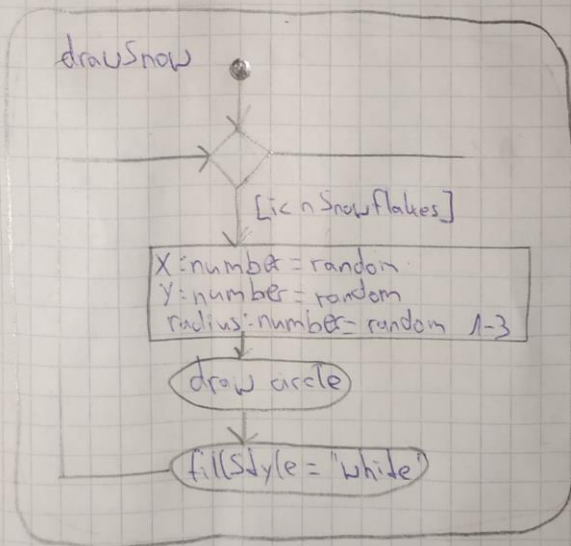 drawSnow
[i< nSnowflakes]
X:number=random
Y:number=random
radius:number=random 1-3
draw circle
fillStyle="white"